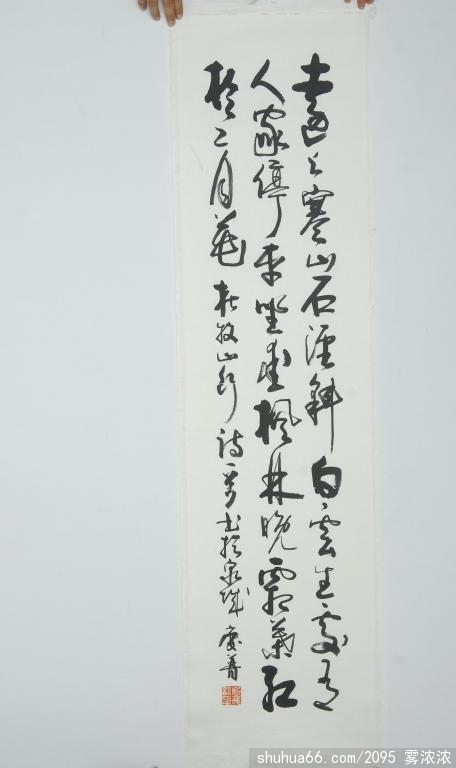 遠上寒山石徑斜白雲生處有
人家停車坐愛楓林晚霜葉紅
於二月花 杜牧山行诗一首书於泉城
shuhua66.com/2095 雾浓浓